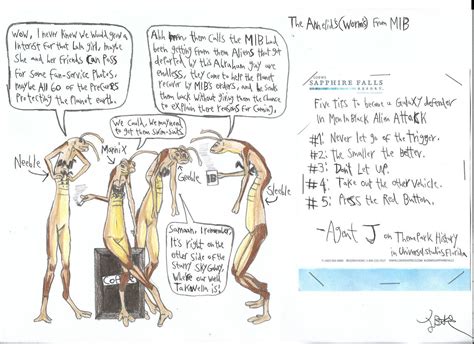 The Annelids (Worms) From MIB
Wow, I never knew we would gave a
Interest for that Lah girl, maybe
She and her Friends Can Pass
For Some Fan-Service Plates.
maybe All 60 of the Precures
Protecting the Planet earth.
Neeble
We Could, we may need
to get them Skin-Suits.
Mannix
Geeble
Ahh them calls the MIB had
been getting from them Aliens that got
departed by this Abraham guy are
endless, they come to help the Planet
recover by MIB's orders, and he sends
them back without giving them the Chance
to explain there reasons for Coming.
Sleeble
I remember.
It's right on the
other side of the
Starry Sky Guay,
Where our well
is!
Coffee
LOEWS
SAPPHIRE FALLS
RESORT
Five tips to become a Galaxy defender
in Men In Black Alien Attack
#1: Never let go of the trigger.
#2: The Smaller the better.
#3: Don't Let UP.
#4: Take out the other vehicle.
#5: Press the Red Button.
-Agent J on Theme Park History
in Universal Studios Florida